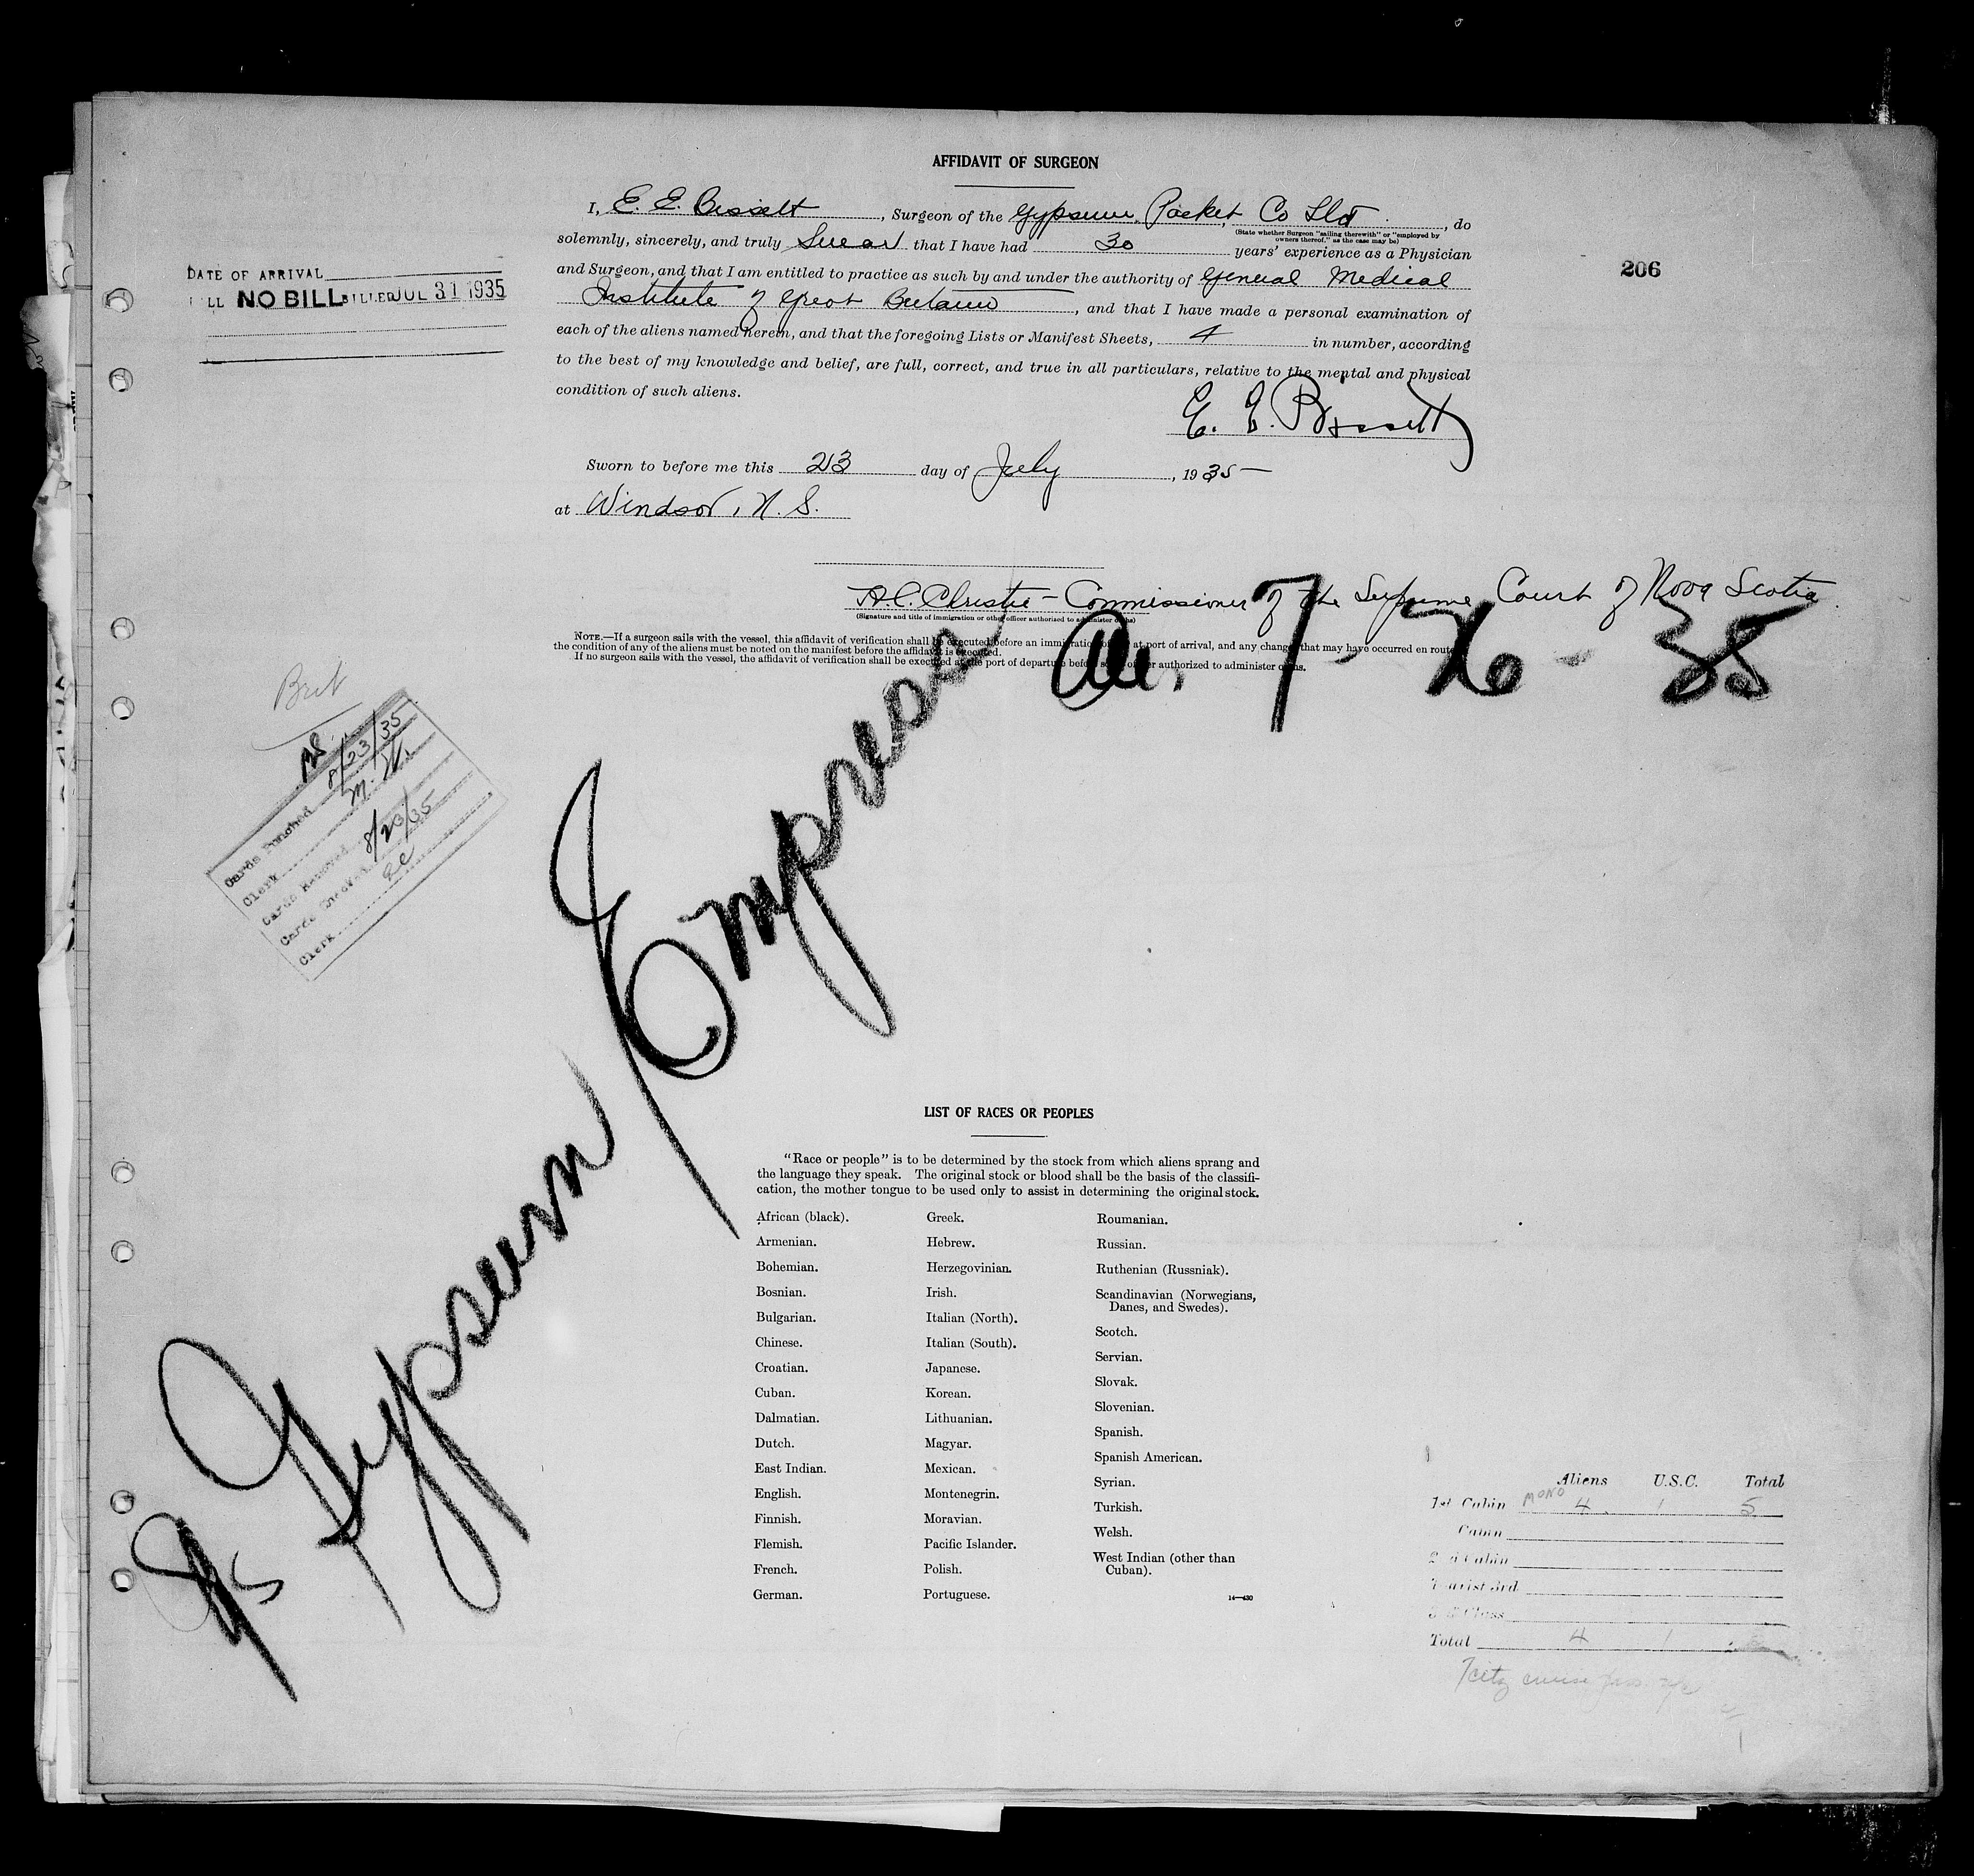 AFFIDAVIT OF SURGEON
I, E. E. Bissett, Surgeon of the Gypsum Packet Co Ltd, do
(State whether Surgeon "sailing therewith" or "employed by
owners thereof," as the case may be)
solemnly, sincerely, and truly Swear that I have had 30 years' experience as a Physician
and Surgeon, and that I am entitled to practice as such by and under the authority of General Medical
Institute of Great Britain, and that I have made a personal examination of
each of the aliens named herein, and that the foregoing Lists or Manifest Sheets, 4 in number, according
to the best of my knowledge and belief, are full, correct, and true in all particulars, relative to the mental and physical
condition of such aliens.
E. E. Bissett
206
DATE OF ARRIVAL
NO BILL BILLED JUL 31 1935
Sworn to before me this 23 day of July, 1935
at Windsor, N. S.
A.C. Christie - Commissioner of the Supreme Court of Nova Scotia
(Signature and title of immigration or other officer authorized to administer oaths)
NOTE.—If a surgeon sails with the vessel, this affidavit of verification shall be executed before an immigration officer at port of arrival, and any change that may have occurred en route in
the condition of any of the aliens must be noted on the manifest before the affidavit is executed.
If no surgeon sails with the vessel, the affidavit of verification shall be executed at the port of departure before some officer authorized to administer oaths.
7-26-35
Brit
Cards Punched 8/23/35
Clerk M. W.
Cards Removed 8/23/35
Cards
Clerk
Gypsum Empress
LIST OF RACES OR PEOPLES
"Race or people" is to be determined by the stock from which aliens sprang and
the language they speak. The original stock or blood shall be the basis of the classifi-
cation, the mother tongue to be used only to assist in determining the original stock.
African (black).
Armenian.
Bohemian.
Bosnian.
Bulgarian.
Chinese.
Croatian.
Cuban.
Dalmatian.
Dutch.
East Indian.
English.
Finnish.
Flemish.
French.
German.
Greek.
Hebrew.
Herzegovinian.
Irish.
Italian (North).
Italian (South).
Japanese.
Korean.
Lithuanian.
Magyar.
Mexican.
Montenegrin.
Moravian.
Pacific Islander.
Polish.
Portuguese.
Roumanian.
Russian.
Ruthenian (Russniak).
Scandinavian (Norwegians,
Danes, and Swedes).
Scotch.
Servian.
Slovak.
Slovenian.
Spanish.
Spanish American.
Syrian.
Turkish.
Welsh.
West Indian (other than
Cuban).
14—430
Aliens U.S.C. Total
1st Cabin MONO 4 1 5
Cabin
2nd Cabin
Tourist 3rd
3rd Class
Total 4 1